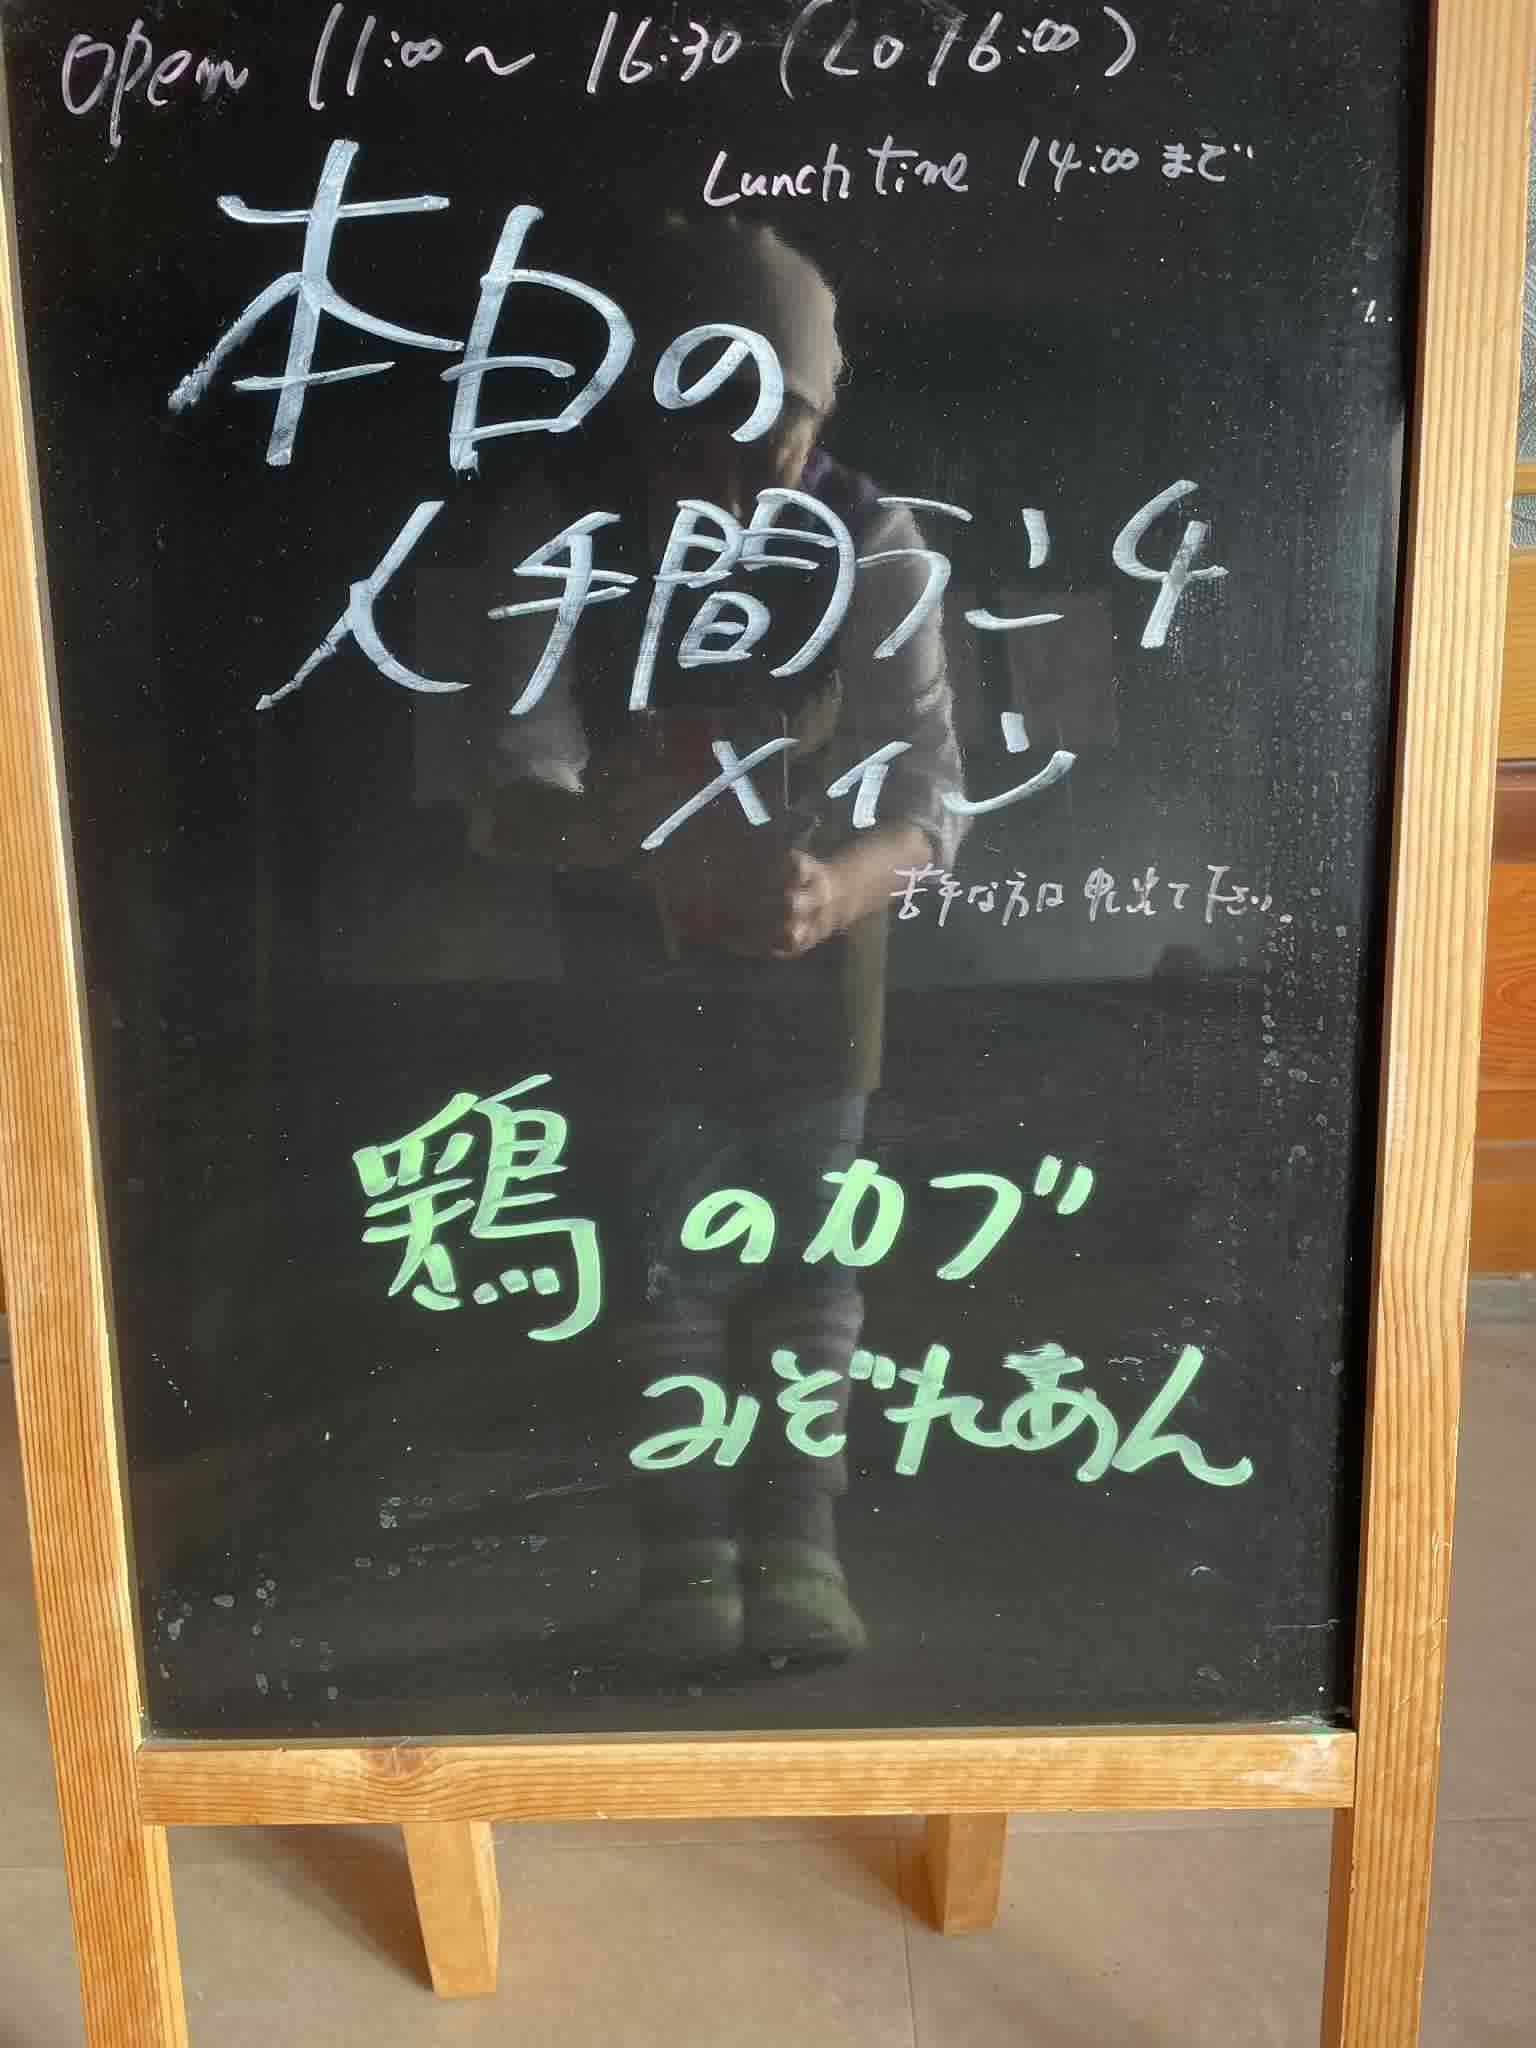 Open 11:00～16:30 (LO 16:00)
Lunch time 14:00まで
本日の
人手間ランチ
メイン
苦手な方は申し出て下さい。
鶏のカブ
みぞれあん